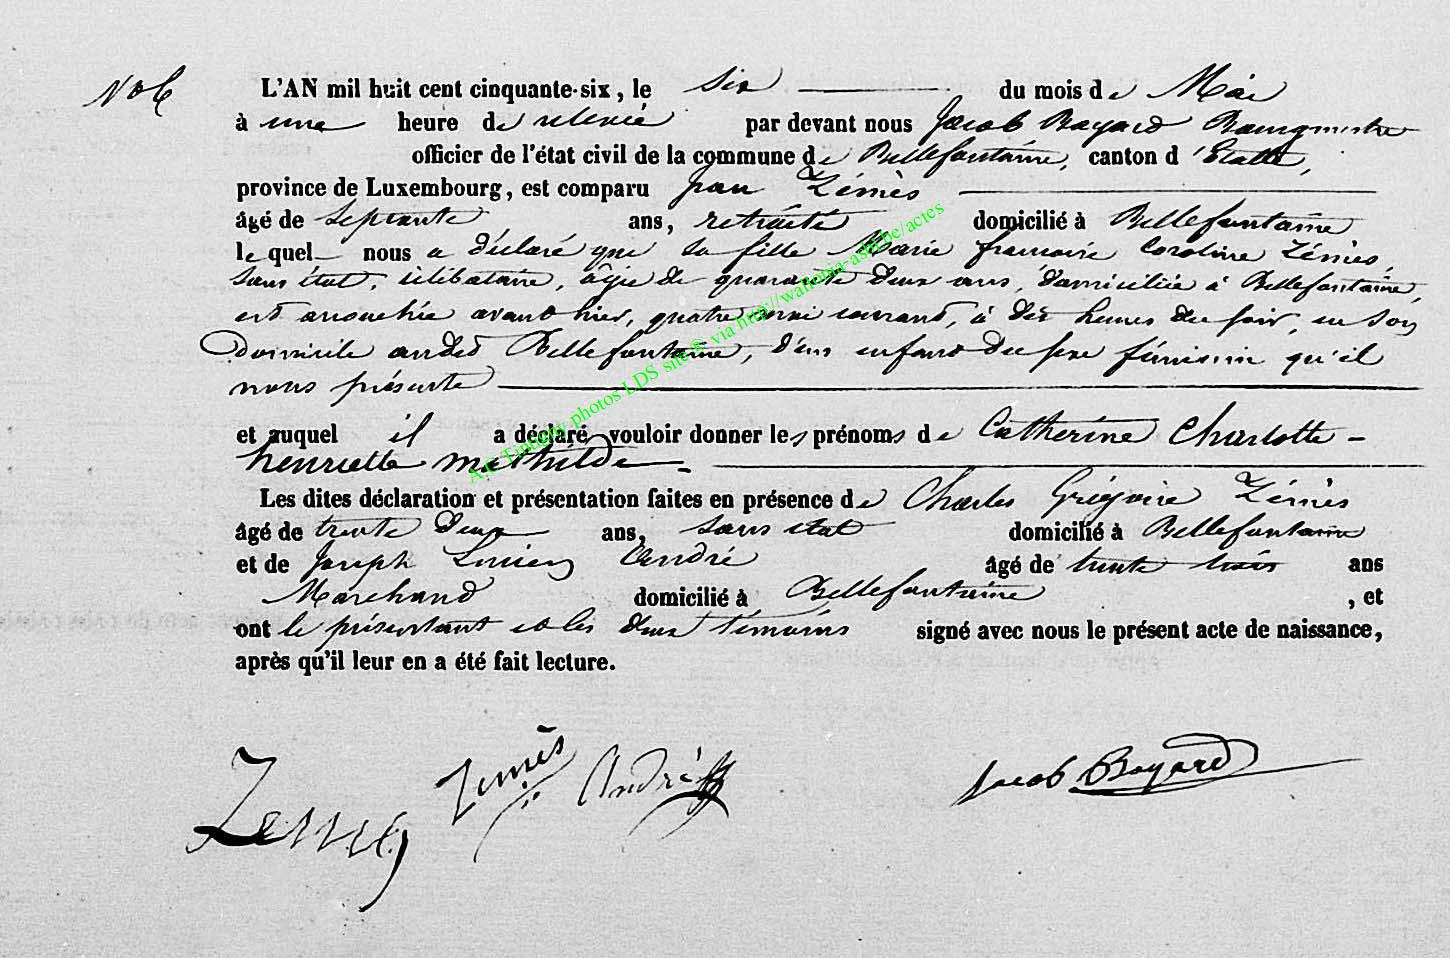 No 6
L'AN mil huit cent cinquante-six, le six du mois de Mai
à une heure de relevée par devant nous Jacob Bayard Bourgmestre
officier de l'état civil de la commune de Bellefontaine, canton d'Etalle,
province de Luxembourg, est comparu Jean Zémès
âgé de septante ans, retraité domicilié à Bellefontaine
le quel nous a déclaré que sa fille Marie françoise Caroline Zémès,
sans état, célibataire, âgée de quarante deux ans, domiciliée à Bellefontaine,
est accouchée avant hier, quatre mai courant, à dix heures du soir, en son
domicile audit Bellefontaine, d'un enfant du sexe féminin qu'il
nous présente
et auquel il a déclaré vouloir donner les prénoms de Catherine Charlotte -
henriette mathilde -
Les dites déclaration et présentation faites en présence de Charles Grégoire Zémès
âgé de trente deux ans, sans état domicilié à Bellefontaine
et de Joseph Lucien André âgé de trente trois ans
Marchand domicilié à Bellefontaine, et
ont le présentant et les deux témoins signé avec nous le présent acte de naissance,
après qu'il leur en a été fait lecture.
Zemes Zemès André Jacob Bayard
A.E Tintigny photos LDS site @ via http://wallonia-asbl.be/actes